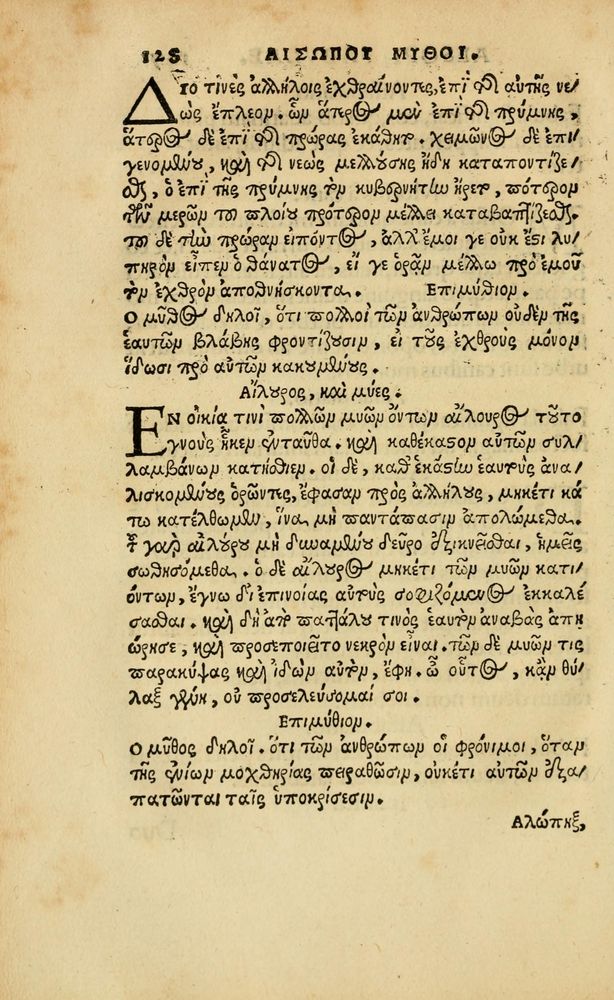 128 ΑΙΣΩΠΟΥ ΜΥΘΟΙ.
Δύο τινὲς ἀλλήλοις ἐχθραίνοντες, ἐπὶ τῆς αὐτῆς νε/
ὼς ἔπλεον. ὧν ἅτερος μὲν ἐπὶ τῆς πρύμνης,
ἅτερος δὲ ἐπὶ τῆς πρώρας ἐκάθητο. χειμῶνος δὲ ἐπι/
γενομένου, καὶ τῆς νεὼς μελλούσης ἤδη καταποντίζε/
σθαι, ὁ ἐπὶ τῆς πρύμνης τὸν κυβερνήτην ἤρετο, πότερον
τῶν μερῶν τοῦ πλοίου πρότερον μέλλει καταβαπτίζεσθαι.
τοῦ δὲ τὴν πρώραν εἰπόντος, ἀλλ' ἔμοι γε οὐκ ἔστι λυ/
πηρὸν εἶπεν ὁ θάνατος, εἴ γε ὁρᾷν μέλλω πρὸ ἐμοῦ
τὸν ἐχθρὸν ἀποθνήσκοντα. Ἐπιμύθιον.
Ὁ μῦθος δηλοῖ, ὅτι πολλοὶ τῶν ἀνθρώπων οὐδὲν τῆς
ἑαυτῶν βλάβης φροντίζουσιν, εἰ τοὺς ἐχθροὺς μόνον
ἴδωσι πρὸ αὐτῶν κακουμένους.
Αἴλουρος, καὶ μύες.
Ἐν οἰκίᾳ τινὶ πολλῶν μυῶν ὄντων αἴλουρος τοῦτο
γνοὺς ἧκεν ἐνταῦθα. καὶ καθέκαστον αὐτῶν συλ/
λαμβάνων κατήσθιεν. οἱ δὲ, καθ' ἑκάστην ἑαυτοὺς ἀνα/
λισκομένους ὁρῶντες, ἔφασαν πρὸς ἀλλήλους, μηκέτι κά
τω κατέλθωμεν, ἵνα μὴ παντάπασιν ἀπολώμεθα.
τοῦ γὰρ αἰλούρου μὴ δυναμένου δεῦρο ἐξικνεῖσθαι, ἡμεῖς
σωθησόμεθα. ὁ δὲ αἴλουρος μηκέτι τῶν μυῶν κατι/
όντων, ἔγνω δι' ἐπινοίας αὐτοὺς σοφιζόμενος ἐκκαλέ
σασθαι. καὶ δὴ ἀπὸ παττάλου τινὸς ἑαυτὸν ἀναβὰς ἀπῃ
ώρησε, καὶ προσεποιεῖτο νεκρὸν εἶναι. τῶν δὲ μυῶν τις
παρακύψας καὶ ἰδὼν αὐτὸν, ἔφη. ὦ οὗτος, κἂν θύ/
λαξ γένῃ, οὐ προσελεύσομαί σοι.
Ἐπιμύθιον.
Ὁ μῦθος δηλοῖ. ὅτι τῶν ἀνθρώπων οἱ φρόνιμοι, ὅταν
τῆς ἐνίων μοχθηρίας πειραθῶσιν, οὐκέτι αὐτῶν ἐξα/
πατῶνται ταῖς ὑποκρίσεσιν.
Ἀλώπηξ,